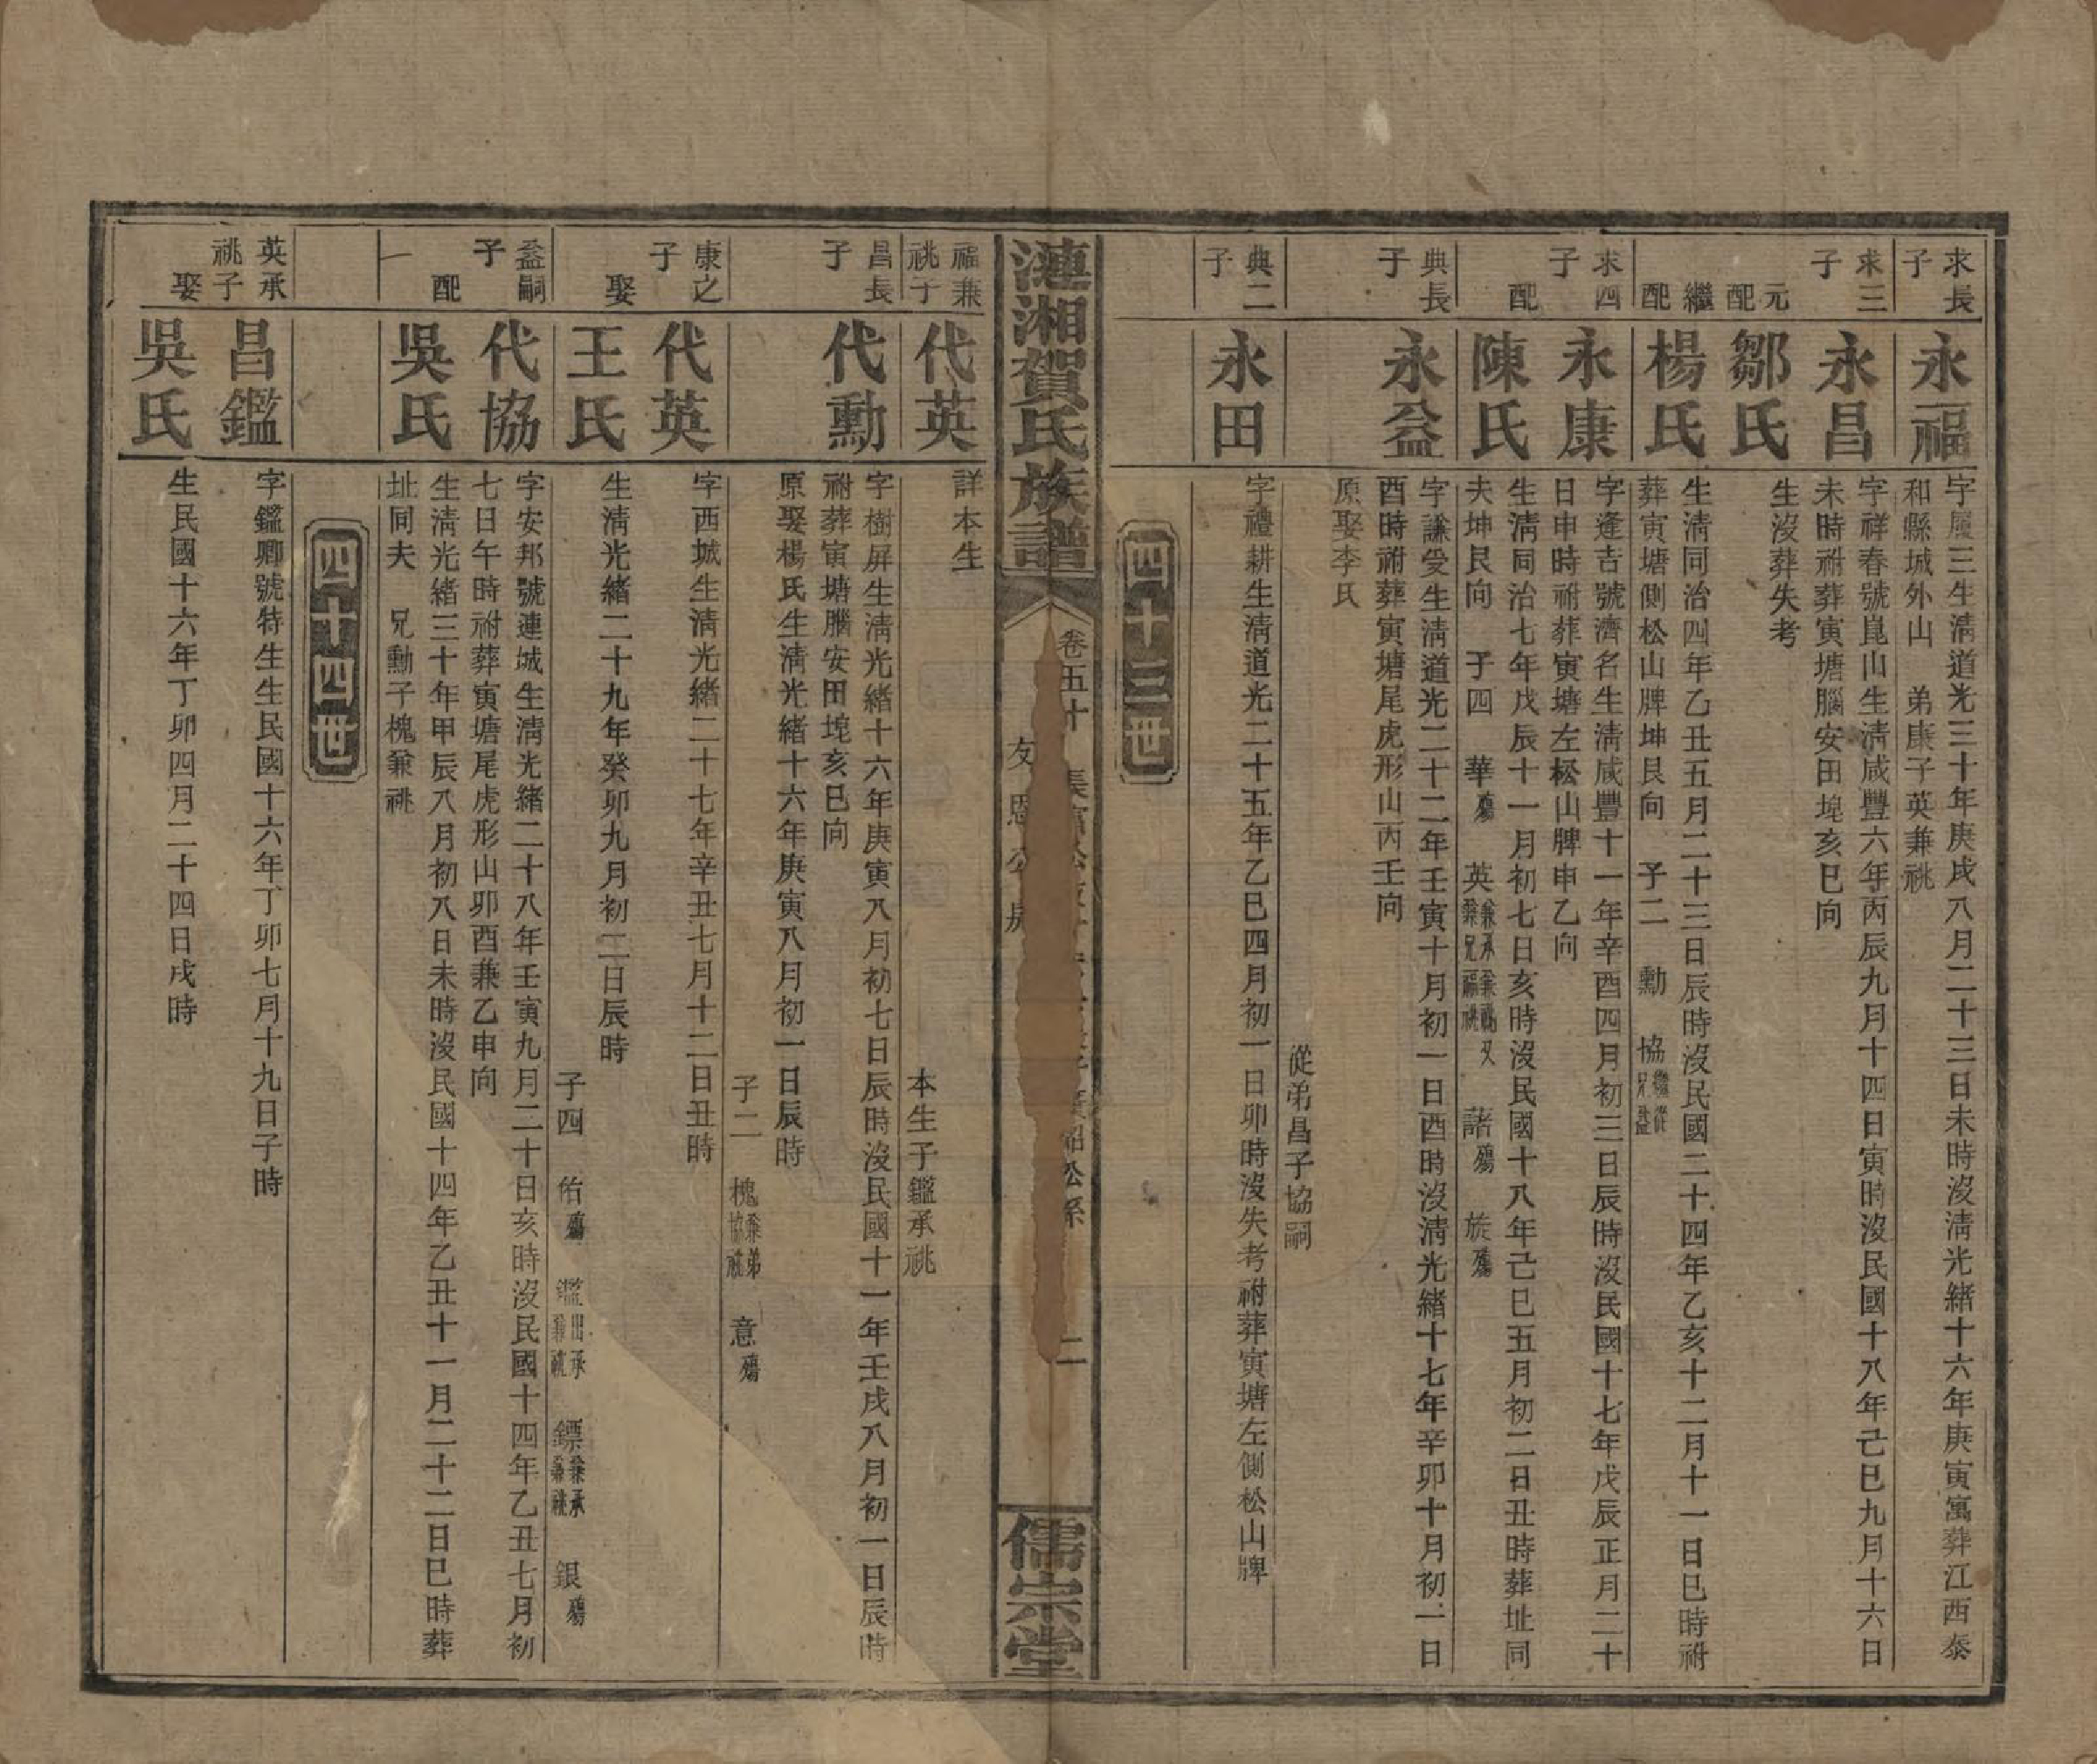 求長子
永福
字慶三生淸道光三十年庚戌八月二十三日未時沒淸光緒十六年庚寅寓葬江西泰
和縣城外山 弟康子英兼祧
求三子
永昌
字祥春號崑山生淸咸豐六年丙辰九月十四日寅時沒民國十八年己巳九月十六日
未時祔葬寅塘腦安田堍亥巳向
元配
鄒氏
生沒葬失考
繼配
楊氏
生淸同治四年乙丑五月二十三日辰時沒民國二十四年乙亥十二月十一日巳時祔
葬寅塘側松山牌坤艮向 子二 勳 協繼從兄益
求四子
永康
字逢吉號濟名生淸咸豐十一年辛酉四月初三日辰時沒民國十七年戊辰正月二十
日申時祔葬寅塘左松山牌申乙向
配
陳氏
生淸同治七年戊辰十一月初七日亥時沒民國十八年己巳五月初二日丑時葬址同
夫坤艮向 子四 華殤 英 諸殤 旋殤
典長子
永益
字謙受生淸道光二十二年壬寅十月初一日酉時沒淸光緒十七年辛卯十月初一日
酉時祔葬寅塘尾虎形山丙壬向
原娶李氏
從弟昌子協嗣
典二子
永田
字禮耕生淸道光二十五年乙巳四月初一日卯時沒失考祔葬寅塘左側松山牌
四十三世
漣湘賀氏族譜
卷五十
友恩公房
紹松系
二
儒宗堂
福兼祧子
代英
詳本生
本生子鑑承祧
昌長子
代勳
字樹屏生淸光緒十六年庚寅八月初七日辰時沒民國十一年壬戌八月初一日辰時
祔葬寅塘腦安田堍亥巳向
原娶楊氏生淸光緒十六年庚寅八月初一日辰時
子二 槐兼弟協祧 意殤
康之子
代英
字西城生淸光緒二十七年辛丑七月十二日丑時
娶
王氏
生淸光緒二十九年癸卯九月初二日辰時
子四 佑殤 鑑出承兼祧 鏢兼承兼祧 銀殤
益嗣子
代協
字安邦號連城生淸光緒二十八年壬寅九月二十日亥時沒民國十四年乙丑七月初
七日午時祔葬寅塘尾虎形山卯酉兼乙申向
一配
吳氏
生淸光緒三十年甲辰八月初八日未時沒民國十四年乙丑十一月二十二日巳時葬
址同夫 兄勳子槐兼祧
四十四世
英承祧子
昌鑑
字鑑卿號特生生民國十六年丁卯七月十九日子時
娶
吳氏
生民國十六年丁卯四月二十四日戌時